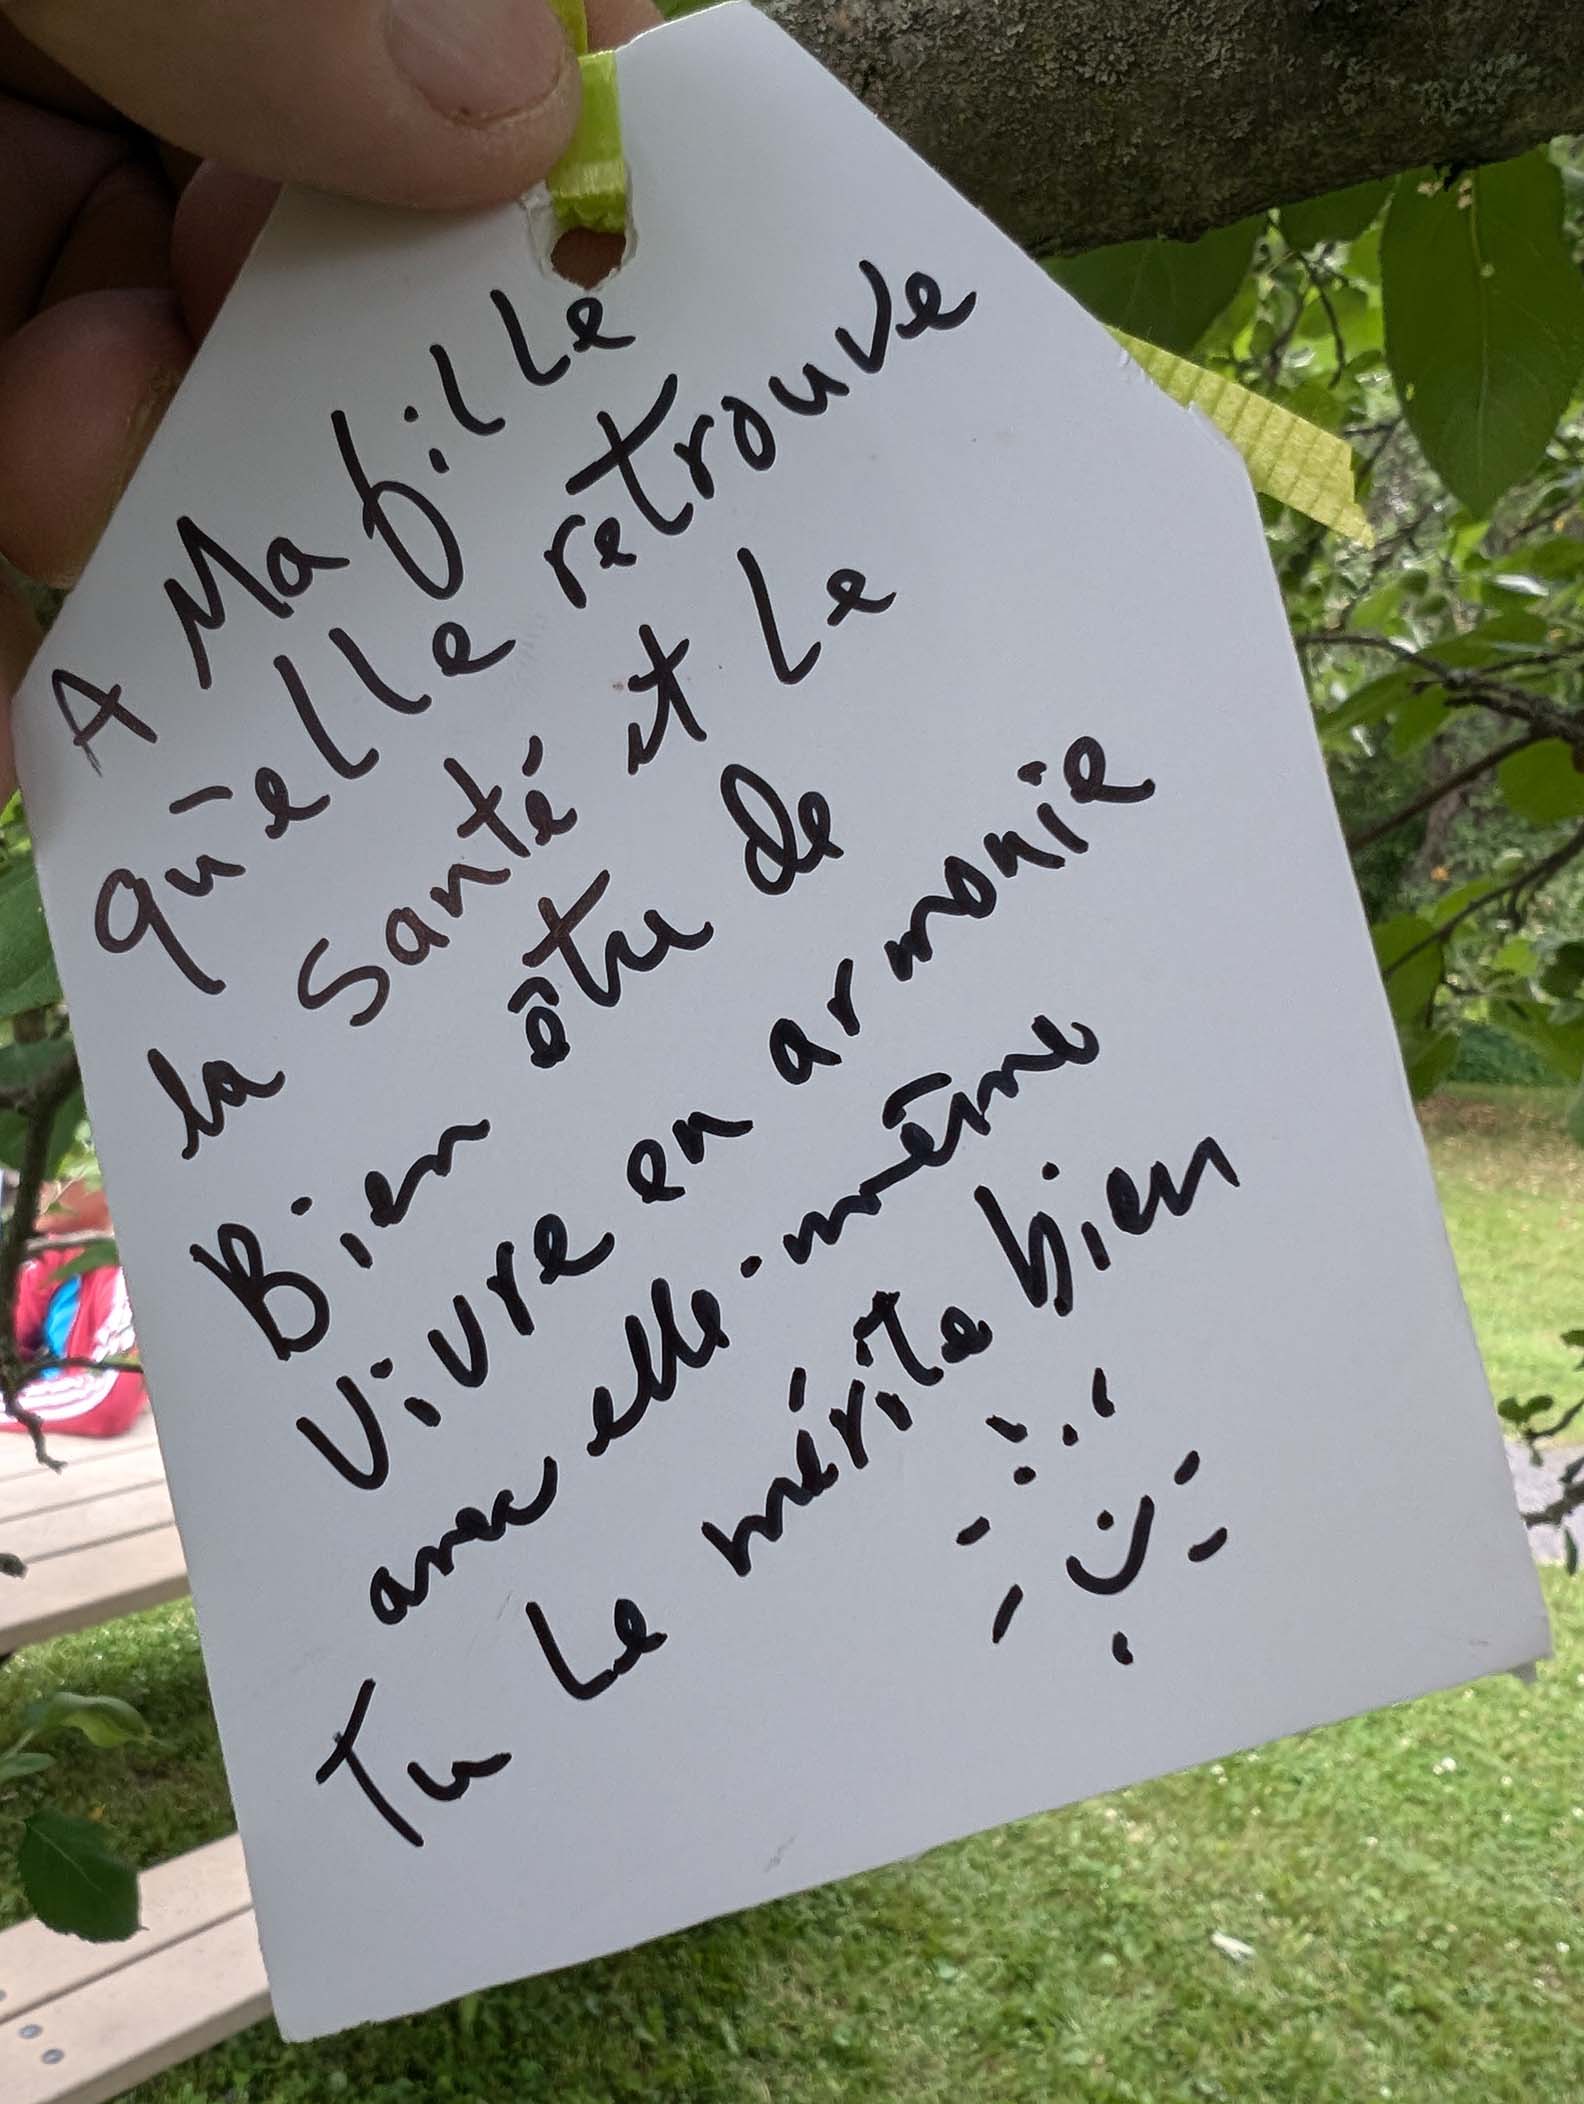 A Ma fille
qu'elle retrouve
la santé et le
Bien être de
Vivre en armonie
avec elle-même
Tu Le mérite bien